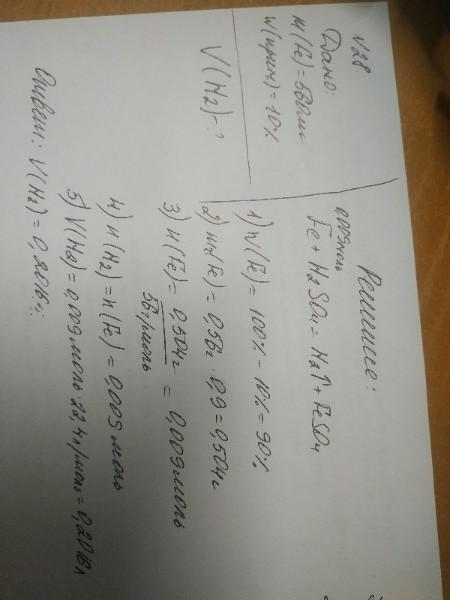 №28
Дано:
m(Fe) = 560мг
W(прим) = 10%
V(H2) - ?
Решение:
0,009моль
Fe + H2SO4 = H2↑ + FeSO4
1) W(Fe) = 100% - 10% = 90%
2) m(Fe) = 0,56г · 0,9 = 0,504г
3) n(Fe) = 0,504г / 56г/моль = 0,009моль
4) n(H2) = n(Fe) = 0,009 моль
5) V(H2) = 0,009моль · 22,4л/моль = 0,2016л
Ответ: V(H2) = 0,2016л.